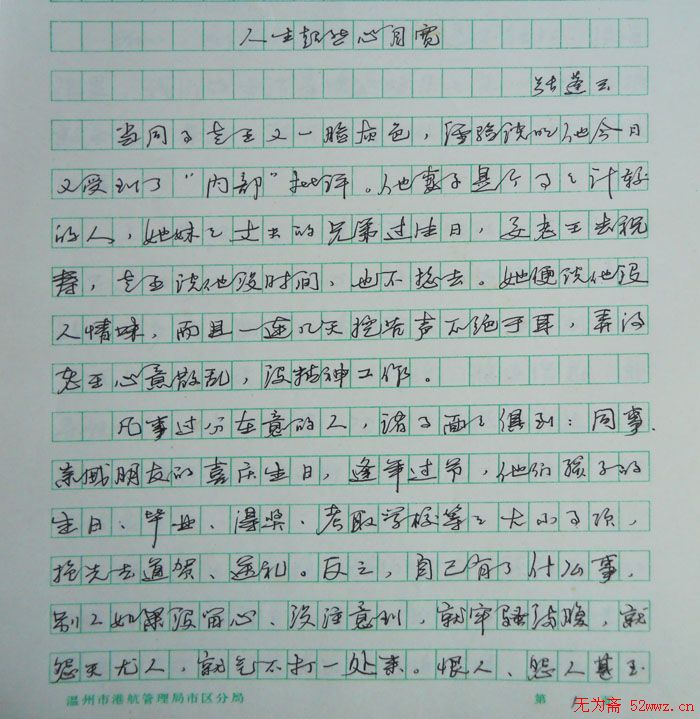 人生超然心自宽
张莲云
当同事老王又一脸灰色，经验说明他今日
又受到了“内部”批评。他妻子是个事事计较
的人，她妹妹丈夫的兄弟过生日，要老王去祝
寿，老王说他没时间，也不想去。她便说他没
人情味，而且一连几天抱怨声不绝于耳，弄得
老王心意散乱，没精神工作。
凡事过分在意的人，诸事面面俱到：同事、
亲戚朋友的喜庆生日，逢年过节，他们孩子的
生日、毕业、得奖、考取学校等等大小事项，
抢先去道贺、送礼。反之，自己有了什么事，
别人如果没留心、没注意到，就牢骚满腹，就
怨天尤人，就气不打一处来。恨人、怨人甚至
温州市港航管理局市区分局
第
无为斋 52wwz.cn